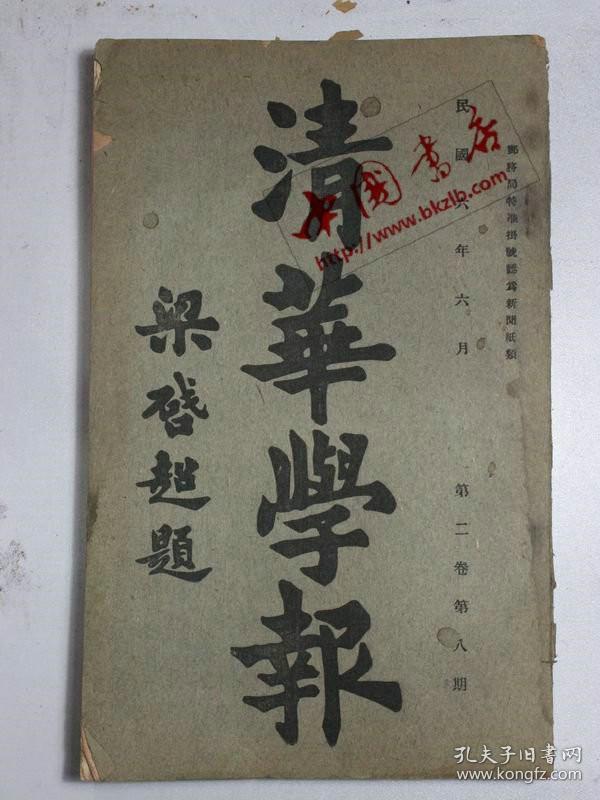 郵務局特准掛號認為新聞紙類
民國六年六月 第二卷第八期
清華學報
梁啓超題
中國書店
http://www.bkzlb.com
孔夫子旧书网
www.kongfz.com